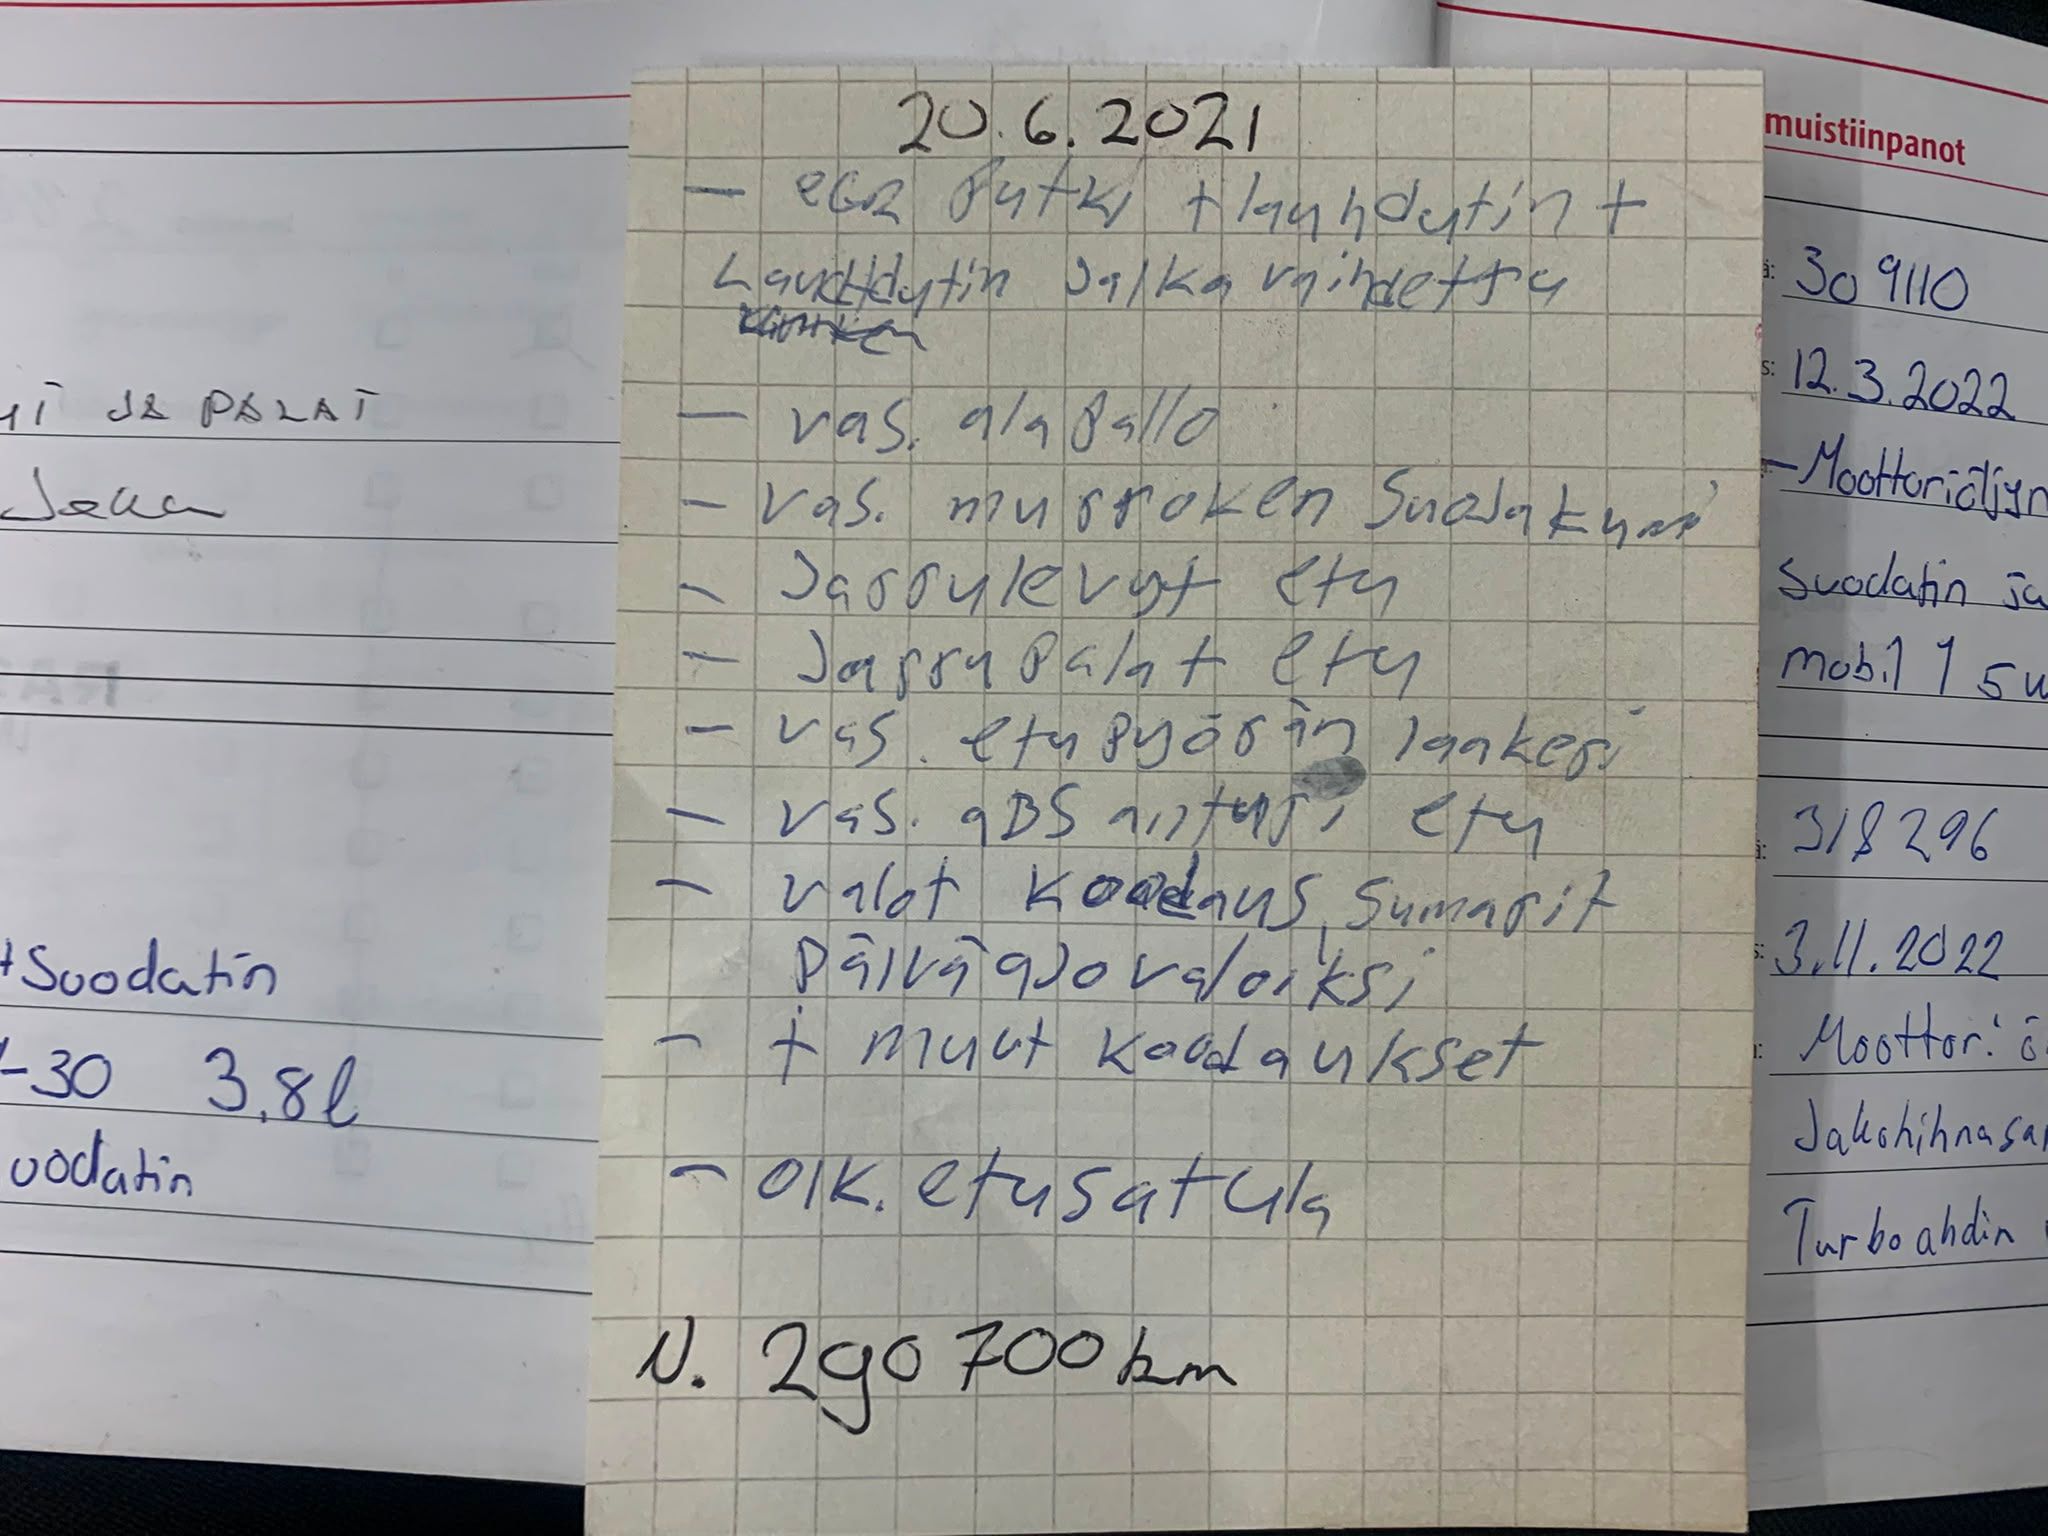 20.6.2021
- EGR Putki + lauhdutin +
Lauhdutin Jalka vaihdettu
- vas. ala Pallo
- vas. murroken Suojakumi
- Jarrulevyt etu
- Jarru Palat etu
- vas. etuPyörän laakeri
- vas. aBS anturi etu
- valot koodaus, Sumarit
Päiväajovaloiksi
- + muut koodaukset
- oik. etusatula
N. 290 700 km
JA PALAT
+Suodatin
-30 3,8l
uodatin
muistiinpanot
309110
12.3.2022
- Moottoriöljyn
Suodatin ja
mobil 1 5w
318296
3.11.2022
Moottoriö
Jakohihnasar
Turboahdin